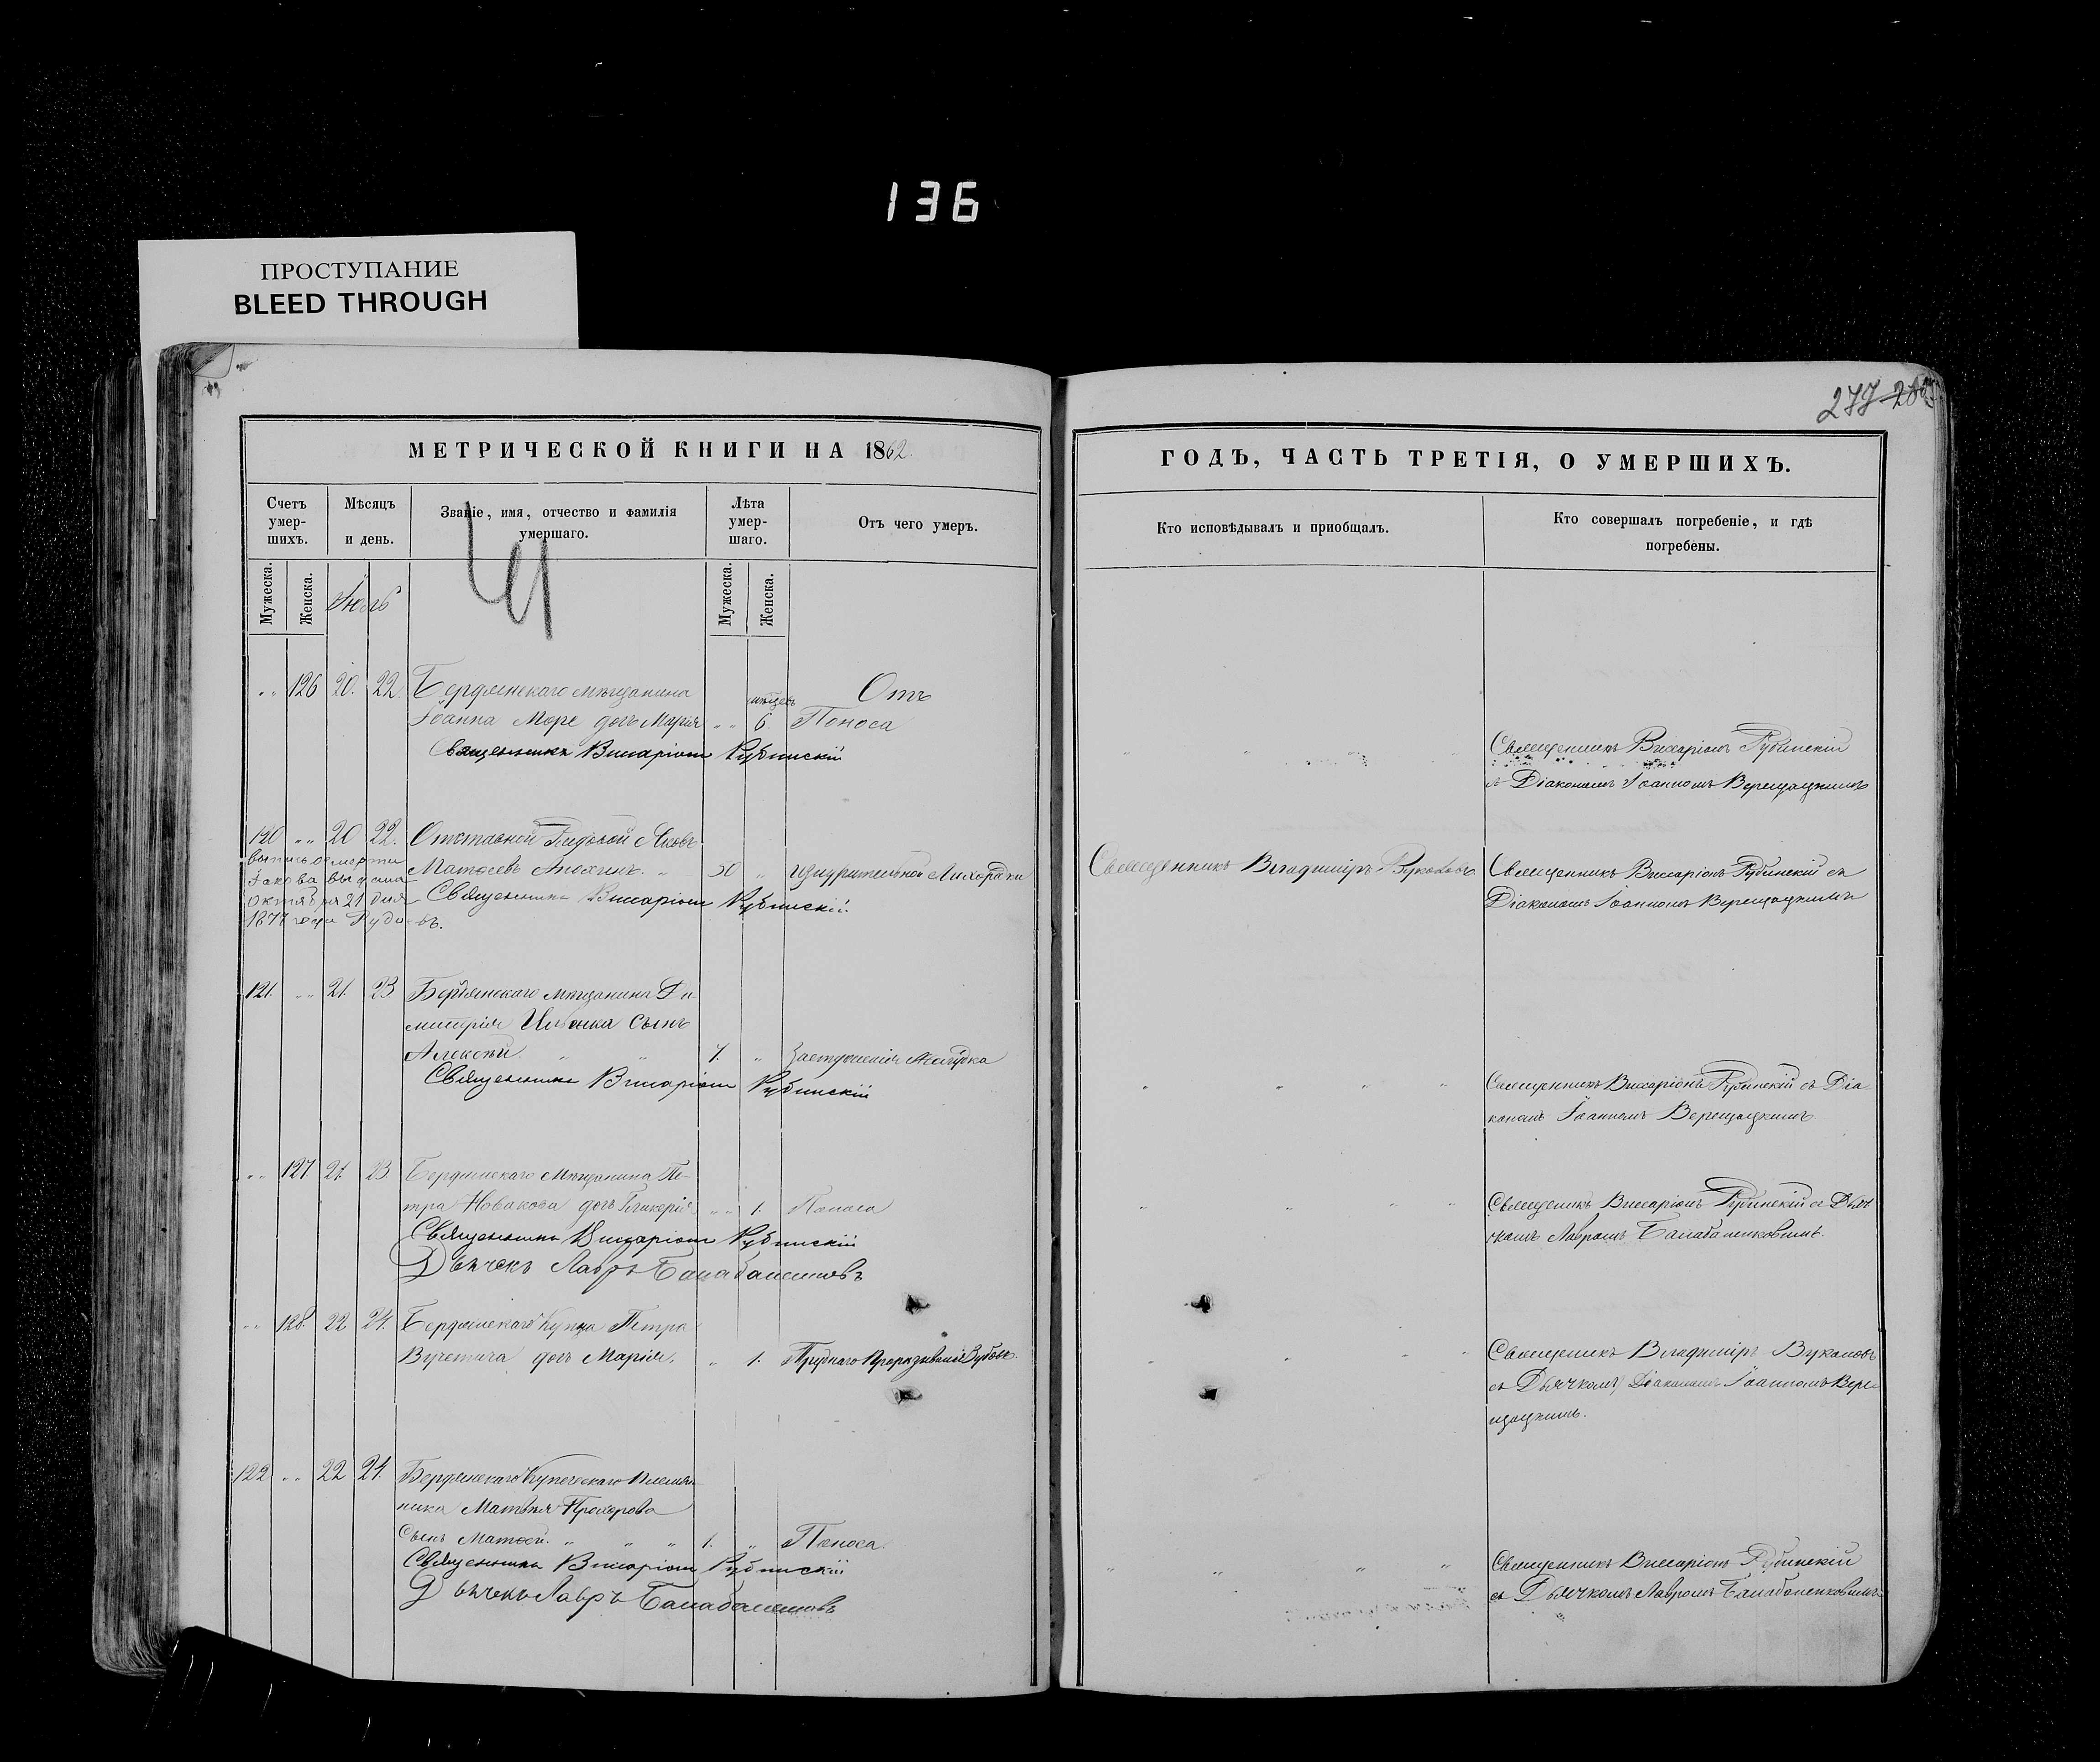 136
ПРОСТУПАНИЕ
BLEED THROUGH
277 280
МЕТРИЧЕСКОЙ КНИГИ НА 1862.
ГОДЪ, ЧАСТЬ ТРЕТІЯ, О УМЕРШИХЪ.
Счетъ умер-шихъ.
Мѣсяцъ и день.
Званіе, имя, отчество и фамилія умершаго.
Лѣта умер-шаго.
Отъ чего умеръ.
Кто исповѣдывалъ и приобщалъ.
Кто совершалъ погребеніе, и гдѣ погребены.
Мужеска.
Женска.
Іюль
Мужеска.
Женска.
„ 126 20. 22. Бердянскаго мѣщанина
Іоанна Море дочь Марія „ 6 мѣсцевъ Отъ Поноса
Священникъ Виссаріонъ Рубинскій
Священникъ Виссаріонъ Рубинскій
съ Діакономъ Іоанномъ Верещацкимъ
120 „ 20 22. Отставной Рядовой Яковъ
Матѳеевъ Анохинъ. „ 50 „ Изнурительной Лихорадки
Священникъ Виссаріонъ Рубинскій
выпись о смерти
Іакова выдана
Октября 21 дня
1877 года
Священникъ Владиміръ
Священникъ Виссаріонъ Рубинскій съ
Діакономъ Іоанномъ Верещацкимъ
121. „ 21. 23 Бердянскаго мѣщанина Ди-
митрія сынъ
Алексѣй. „ „ „ Желудка
Священникъ Виссаріонъ Рубинскій
Священникъ Виссаріонъ Рубинскій съ Діа-
кономъ Іоанномъ Верещацкимъ.
„ 127 21. 23. Бердянскаго Мѣщанина Пе-
тра Новакова дочь Гликерія „ 1. Поноса
Священникъ Виссаріонъ Рубинскій
Дьячекъ Лавръ
Священникъ Виссаріонъ Рубинскій съ Дьяч-
комъ Лавромъ
„ 128. 22 24. Бердянскаго Купца Петра
Вучетича дочь Марія. „ 1. Труднаго Прорязыванія Зубовъ.
Священникъ Владиміръ
съ Дьячкомъ Діакономъ Іоанномъ Вере-
щацкимъ.
122 „ 22 24. Бердянскаго Купеческаго Племян-
ника Матвѣя Прохорова
Сынъ Матѳей. „ „ „ 1. „ Поноса.
Священникъ Виссаріонъ Рубинскій
Дьячекъ Лавръ
Священникъ Виссаріонъ Рубинскій
съ Дьячкомъ Лавромъ